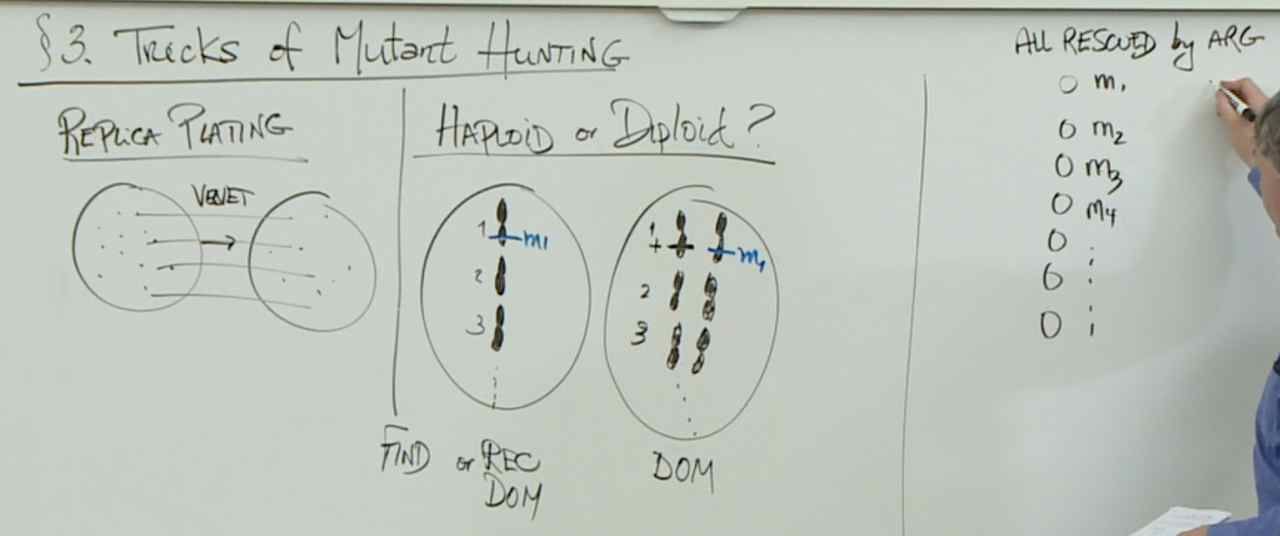 §3. Tricks of Mutant HUNTING
REPLICA PLATING
VELVET
HAPLOID or Diploid?
1
m1
2
3
1
+
m1
2
3
FIND or REC
DOM
DOM
ALL RESCUED by ARG
O m1
O m2
O m3
O m4
O
O
O